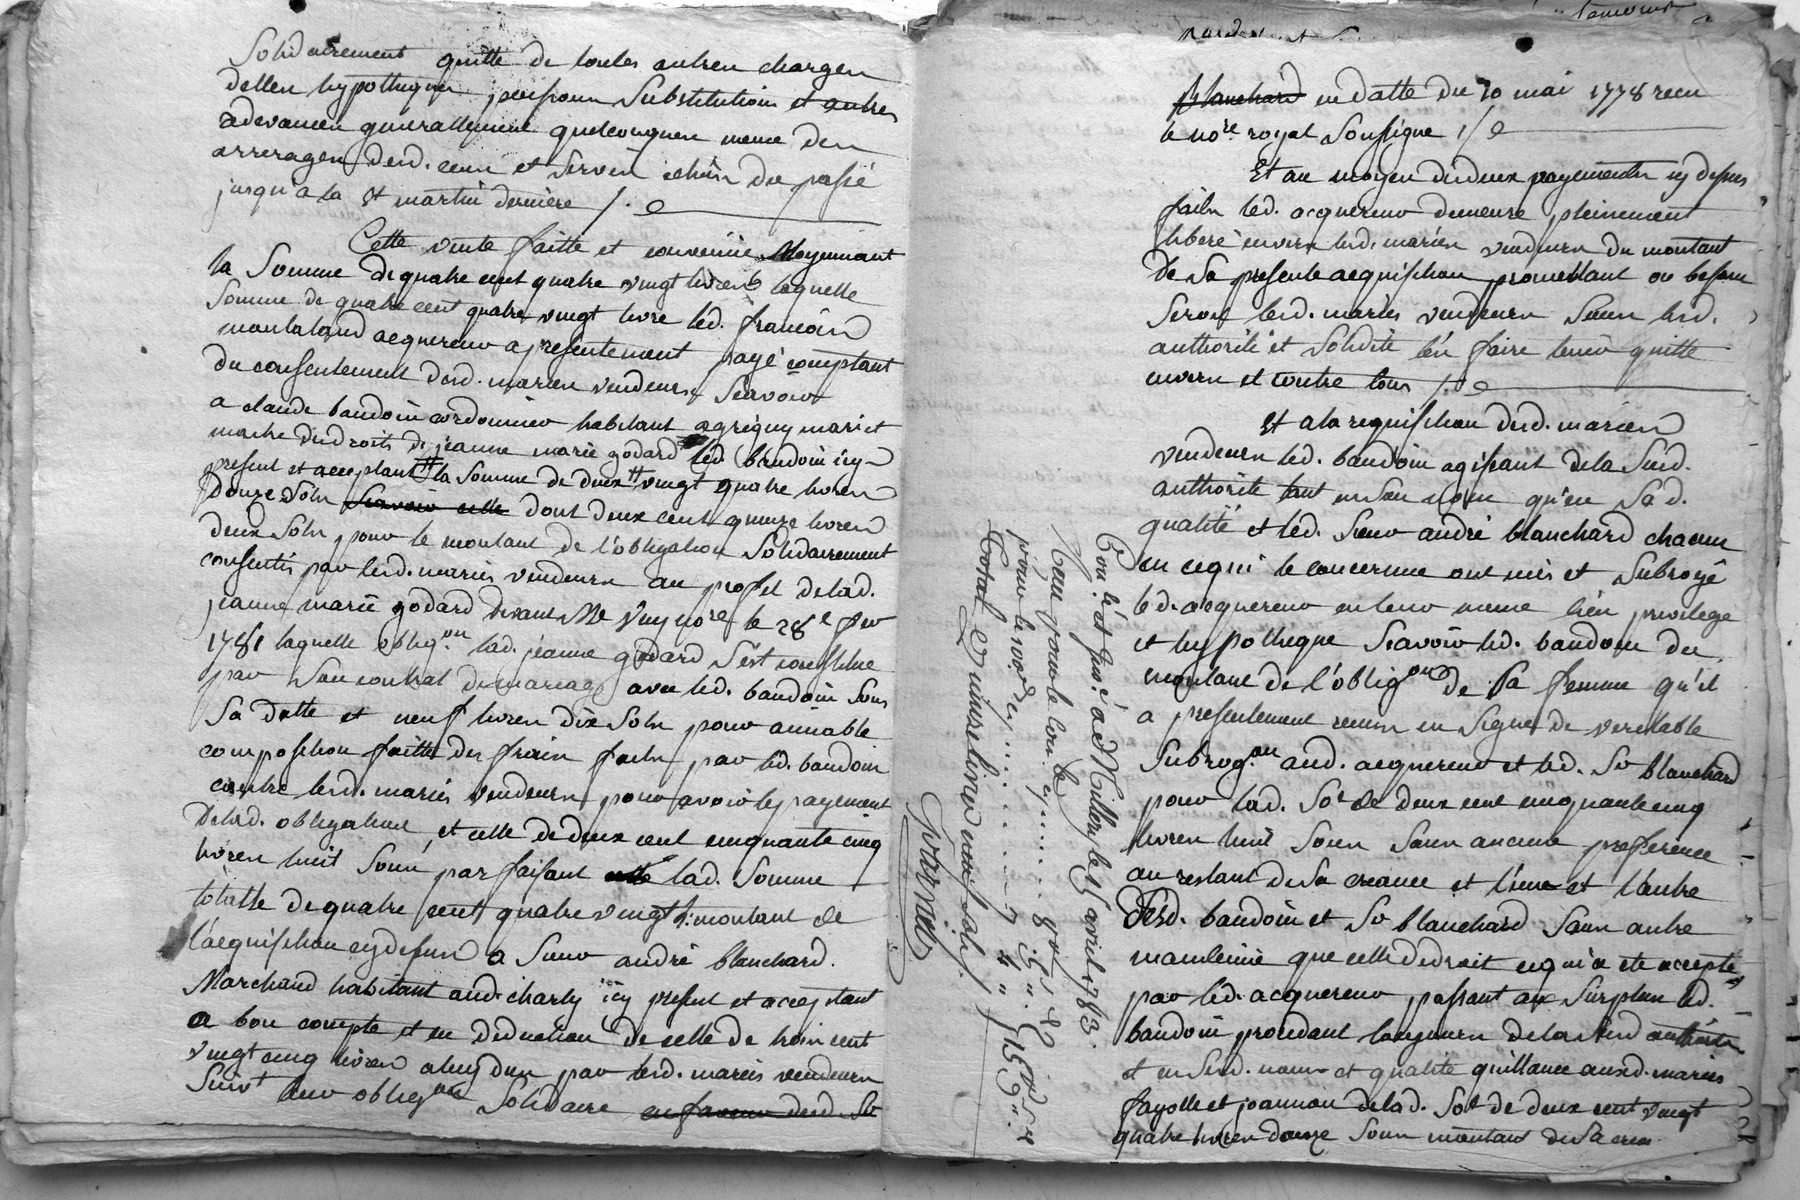 Solidairement quitte de toutes autres charges
dettes hypotheques pensions Substitutions et autres
redevances generallement quelconques meme des
arrerages desd. cens et servis echûs du passé
jusqu'a la St martin derniere /.
Cette vente faitte et convenüe Moyennant
la Somme de quatre cent quatre vingt livres laquelle
Somme de quatre cent quatre vingt livre led. francois
acquereur a presentement payé comptant
du consentement desd. maries vendeurs Scavoir
a claude baudoin cordonnier habitant a grigny mari et
maitre des droits de jeanne marie godard led. baudoin icy
present et acceptant la Somme de deux vingt quatre livres
douze Sols Scavoir celle dont deux cent quinze livres
deux Sols pour le montant de l'obligation Solidairement
consentis par lesd. maries vendeurs au profit de lad.
jeanne marie godard devant Me no.re le 28e
1781 laquelle oblig.on lad. jeanne godard S'est constitué
par Son contrat de mariage avec led. baudoin Sous
Sa datte et neuf livres dix Sols pour amiable
composition faitte des frais faits par led. baudoin
contre lesd. maries vendeurs pour avoir le payement
de lad. obligation et celle de deux cent cinquante cinq
livres huit Sous parfaisant lad. Somme
totalle de quatre cent quatre vingt l. montant de
l'acquisition cy dessus a Sieur andré blanchard
Marchand habitant aud. charly icy present et acceptant
a bon compte et en deduction de celle de trois cent
vingt cinq livres a luy due par lesd. maries vendeurs
Suiv.t leur oblig.on Solidaire en faveur dud. Sr
blanchard en datte du 20 mai 1778 recu
le no.re royal Soussigné /.
Et au moyen des deux payements cy dessus
faits led. acquereur demeure pleinement
liberé envers lesd. maries vendeurs du montant
de Sa presente acquisition promettant ou besoin
Seroit lesd. maries vendeurs Sous lesd.
authorité et Solidité l'en faire tenir quitte
envers et contre tous /.
Et a la requisition desd. maries
vendeurs led. baudoin agissant de la Susd.
authorité tant en Son nom qu'en Sad.
qualité et led. Sieur andré blanchard chacun
en ce qui le concerne ont mis et Subrogé
led. acquereur en leur meme lieu privilege
et hypotheque Scavoir led. baudoin du
montant de l'oblig.on de Sa femme qu'il
a presentement remis en Signe de veritable
Subrog.on aud. acquereur et led. Sr blanchard
pour lad. So.e de deux cent cinquante cinq
livres huit Sous Sans aucune preference
au restant de Sa creance et l'une et l'autre
desd. baudoin et Sr blanchard Sans autre
maintenüe que celle de droit ce qui a été accepté
par led. acquereur passant au Surplus led.
baudoin procedant toujours de la Susd authorité
et en Susd. noms et qualité quittance auxd. maries
fayolle et joannon de lad. So.e de deux cent vingt
quatre livres douze Sous montant de Sa crea
Con.lé et pai. a Millery le 15 avril 1783.
Recu pour le con.le
pour
Total quinse livres neuf sols.